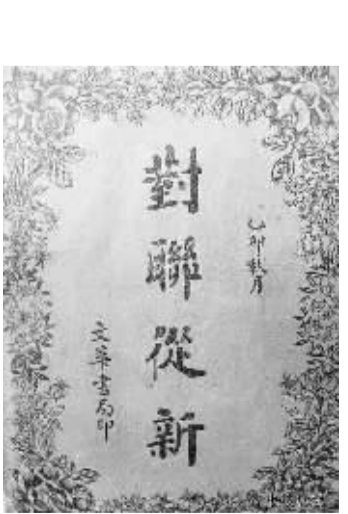 乙卯秋月
對聯從新
文華書局印